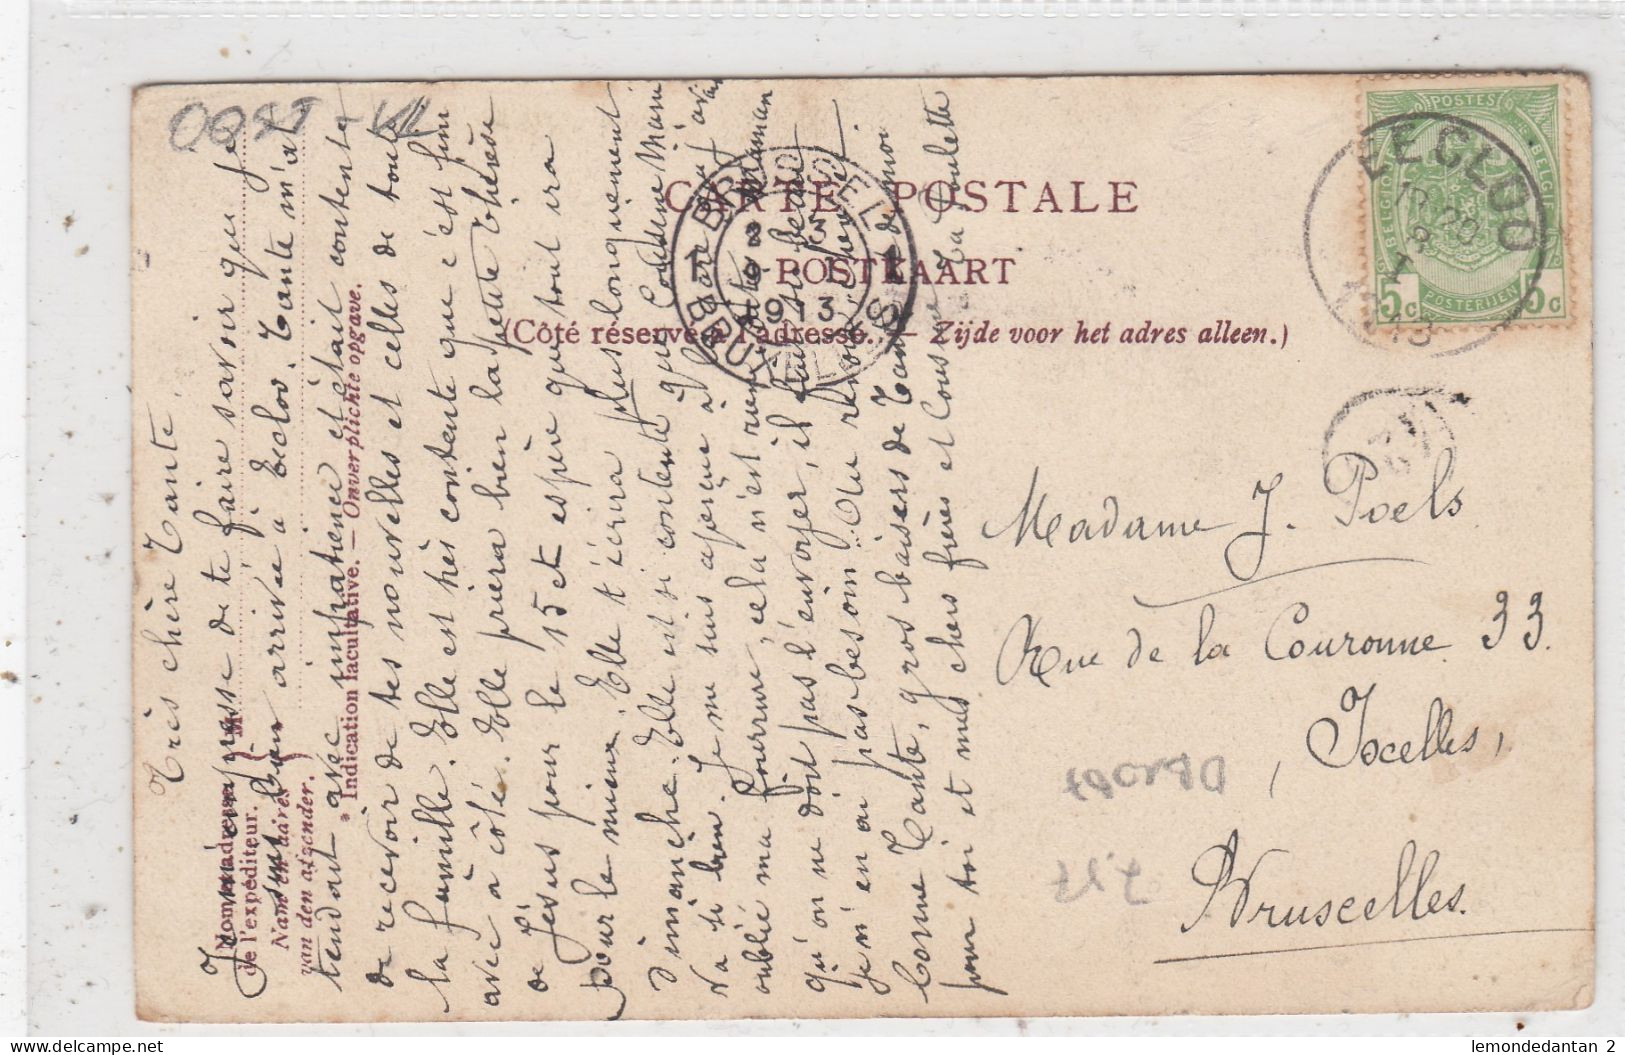 CARTE POSTALE
POSTKAART
(Côté réservé à l'adresse. — Zijde voor het adres alleen.)
POSTES
BELGIQUE
BELGIE
POSTERIJEN
5c 5c
EECLOO
1913
Madame J. Poels
Rue de la Couronne 33.
Ixelles,
Bruxelles.
Nom et adresse
de l'expéditeur.
Naam en adres
van den afzender.
* Indication facultative. — Onverplichte opgave.
Très chère Tante.
Je m'empresse de te faire savoir que je
suis bien arrivée à Ecloo. Tante m'at
tendait avec impatience et était contente
de recevoir de tes nouvelles et celles de toute
la famille. Elle est très contente que c'est fini
avec à côté. Elle priera bien la petite Thérèse
de Jésus pour le 15 et espère que tout ira
pour le mieux. Elle t'écrira plus longuement
dimanche. Elle est si contente que Cousine
va si bien. Je me suis aperçue à la gare que j'avais
oublié ma fourrure, cela n'est rien maman
qu'on ne doit pas l'envoyer, il fait si beau
je n'en ai pas besoin. Au revoir chère
bonne Tante, gros baisers de Tante de moi
pour toi et mes chers frères et Cousine. Ta Poulette
lemondedantan 2